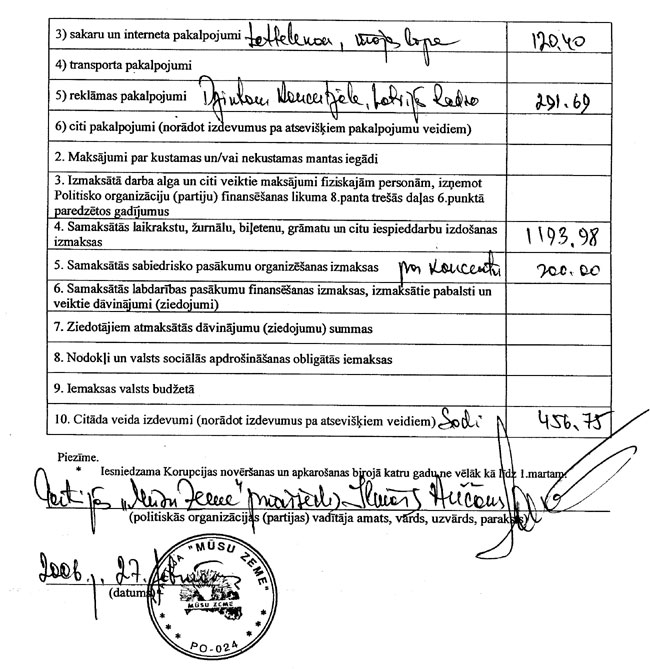 3) sakaru un interneta pakalpojumi Lattelekom, mājas lapa 120.40
4) transporta pakalpojumi
5) reklāmas pakalpojumi Dzintaru Koncertzāle, Latvijas Radio 291.69
6) citi pakalpojumi (norādot izdevumus pa atsevišķiem pakalpojumu veidiem)
2. Maksājumi par kustamas un/vai nekustamas mantas iegādi
3. Izmaksātā darba alga un citi veiktie maksājumi fiziskajām personām, izņemot
Politisko organizāciju (partiju) finansēšanas likuma 8.panta trešās daļas 6.punktā
paredzētos gadījumus
4. Samaksātās laikrakstu, žurnālu, biļetenu, grāmatu un citu iespieddarbu izdošanas
izmaksas 1193.98
5. Samaksātās sabiedrisko pasākumu organizēšanas izmaksas par koncertu 200.00
6. Samaksātās labdarības pasākumu finansēšanas izmaksas, izmaksātie pabalsti un
veiktie dāvinājumi (ziedojumi)
7. Ziedotājiem atmaksātās dāvinājumu (ziedojumu) summas
8. Nodokļi un valsts sociālās apdrošināšanas obligātās iemaksas
9. Iemaksas valsts budžetā
10. Citāda veida izdevumi (norādot izdevumus pa atsevišķiem veidiem) Sodi 456.75
Piezīme.
* Iesniedzama Korupcijas novēršanas un apkarošanas birojā katru gadu ne vēlāk kā līdz 1.martam.
Partijas "Mūsu Zeme" priekšsēd.
(politiskās organizācijas (partijas) vadītāja amats, vārds, uzvārds, paraksts)
2006. 27. februāris
(datums)
PARTIJA "MŪSU ZEME"
MŪSU ZEME
PO-024